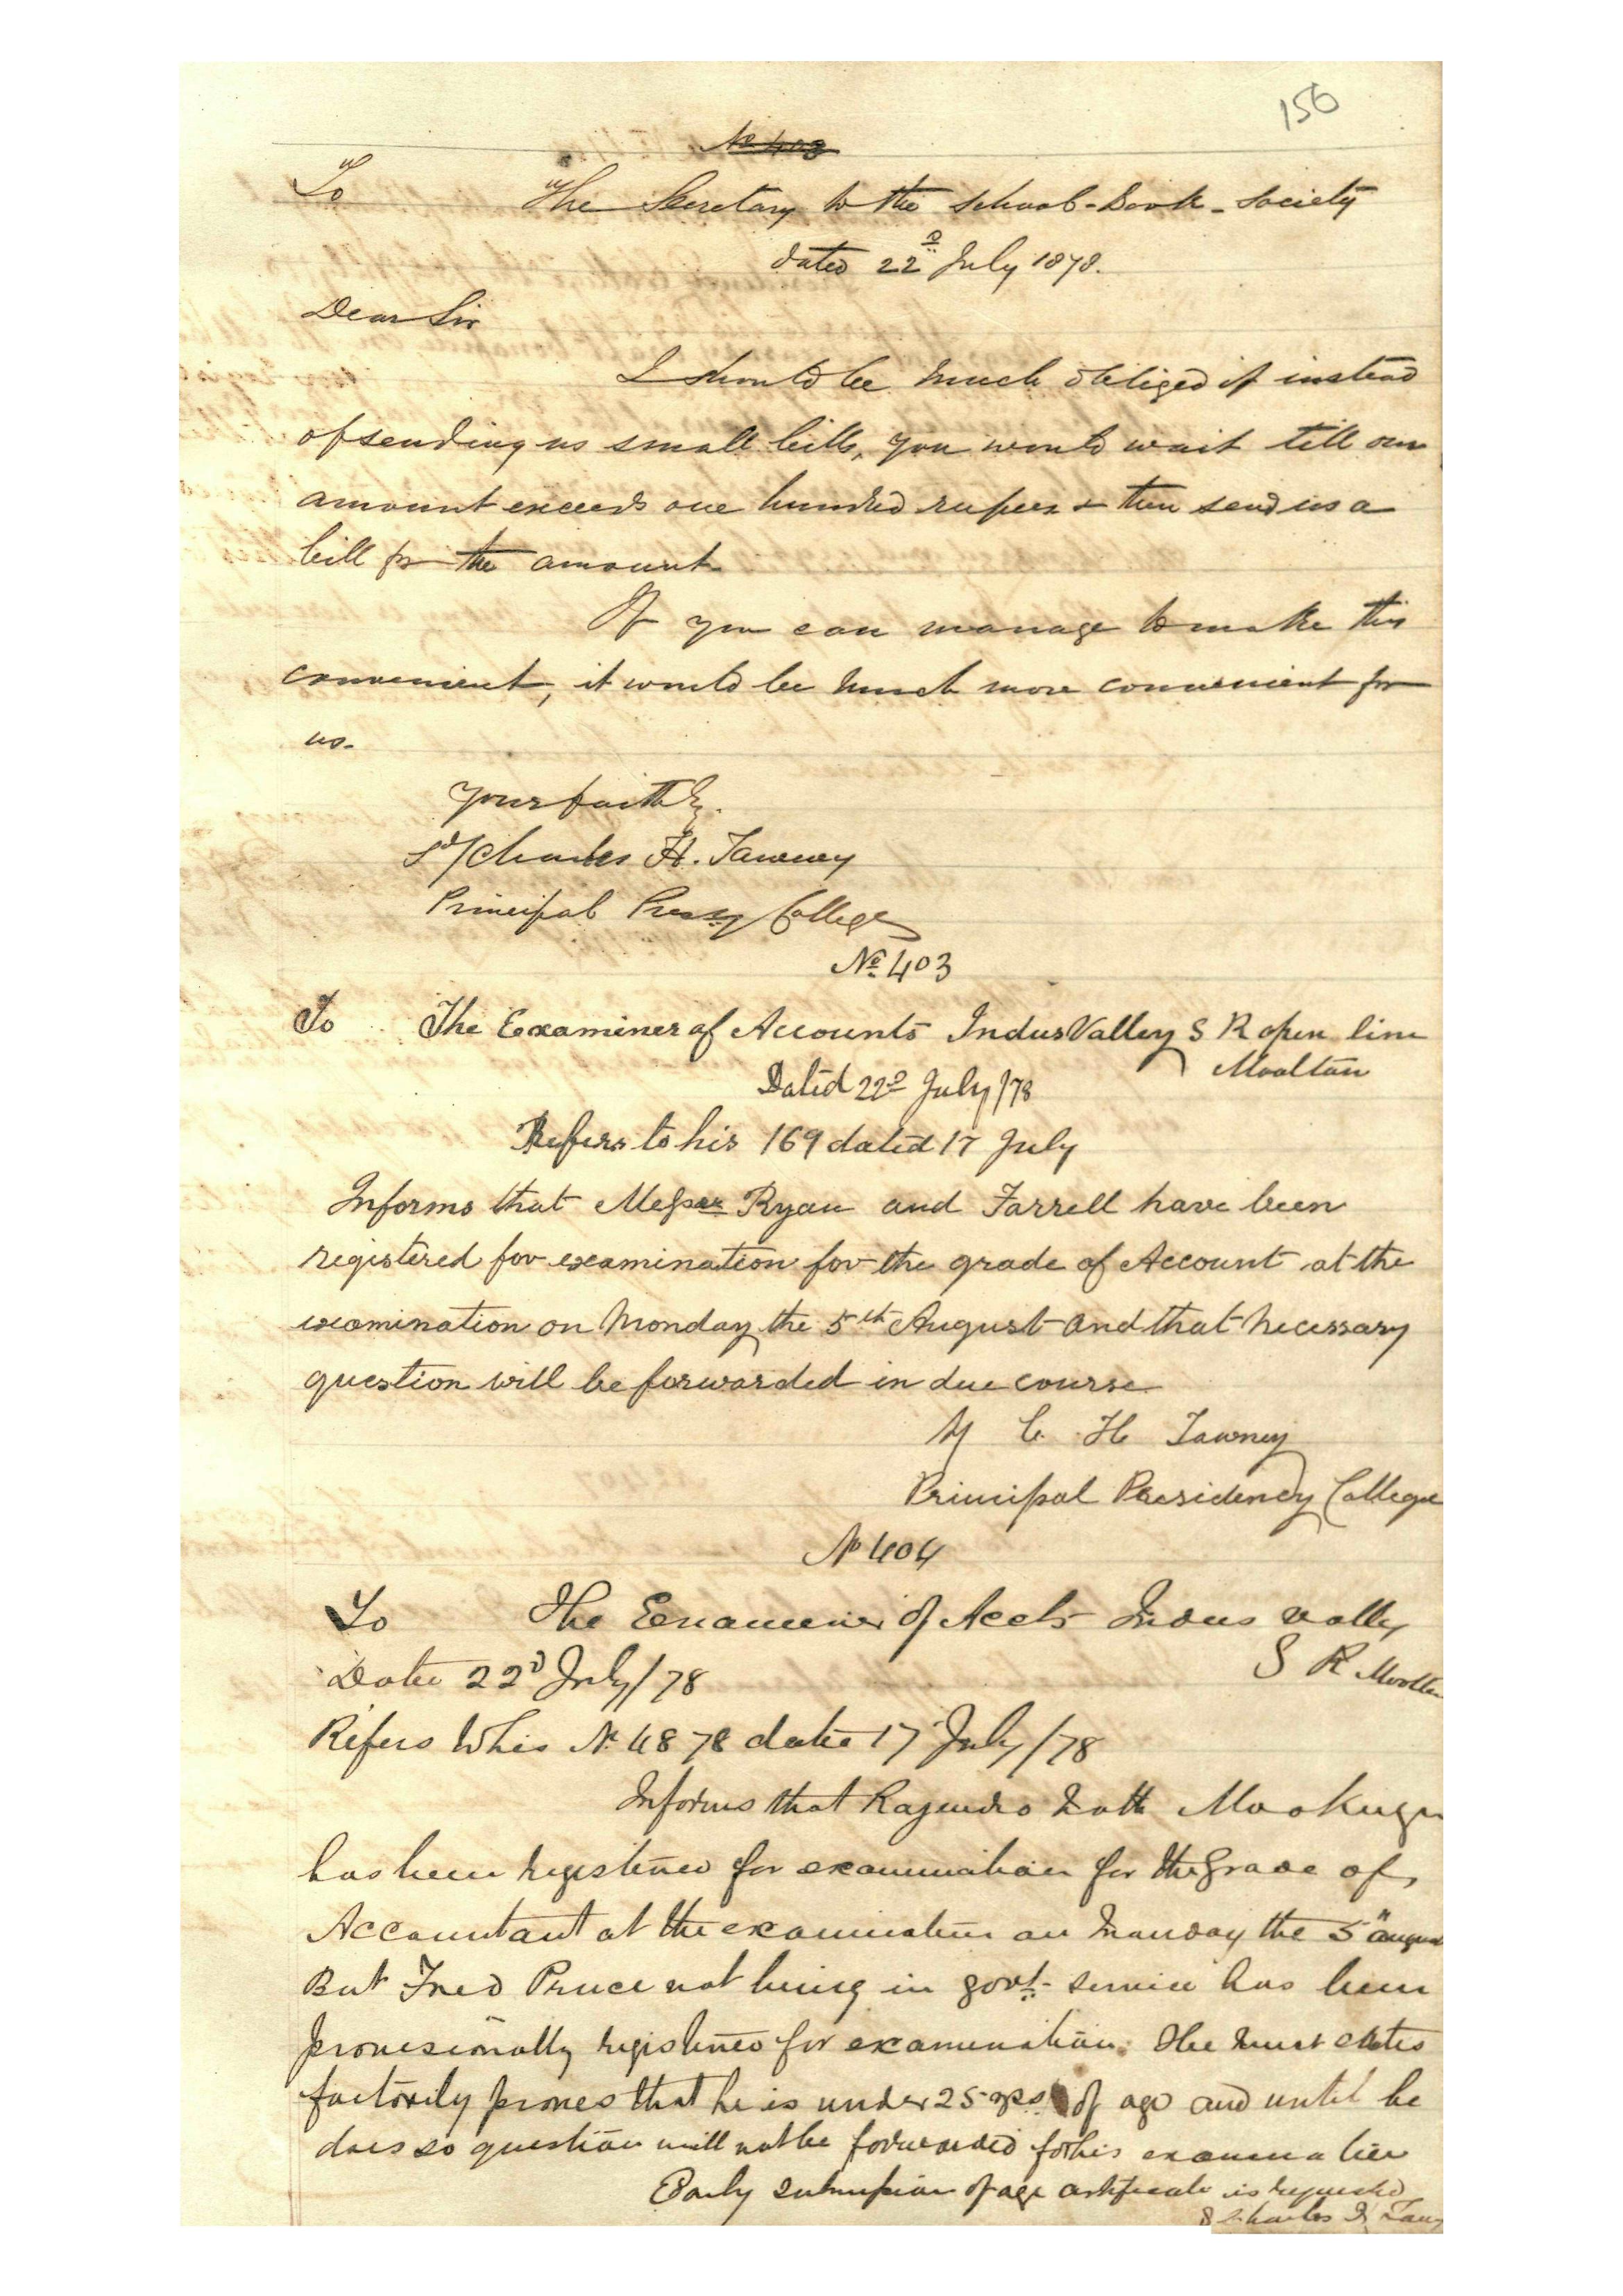 156
No 403
To The Secretary to the School-Book-Society
dated 22d July 1878.
Dear Sir
I should be much obliged if instead
of sending us small bills, you would wait till our
amount exceeds one hundred rupees & then send us a
bill for the amount
If you can manage to make this
convenient, it would be much more convenient for
us.
Yours faithly.
Sd/ Charles H. Tawney
Principal Presy College
No 403
To The Examiner of Accounts Indus Valley S R open line
Mooltan
Dated 22d July/78
Refers to his 169 dated 17 July
Informs that Messrs Ryan and Farrell have been
registered for examination for the grade of Account at the
examination on Monday the 5th August and that necessary
question will be forwarded in due course
C. H Tawney
Principal Presidency College
No 404
To The Examiner of Accts Indus Valley
S R Mooltan
Date 22d July/78
Refers to his No 4878 date 17 July/78
Informs that Rajendro Nath Mookerjee
has been registered for examination for the Grade of
Accountant at the examination on Monday the 5" August
But Fred Pruce not being in govt. service has been
provisionally registered for examination. He must satis
factorily proves that he is under 25 yrs of age and until he
does so question will not be forwarded for his examination
Early submission of age certificate is requested
Sd Charles H Taw